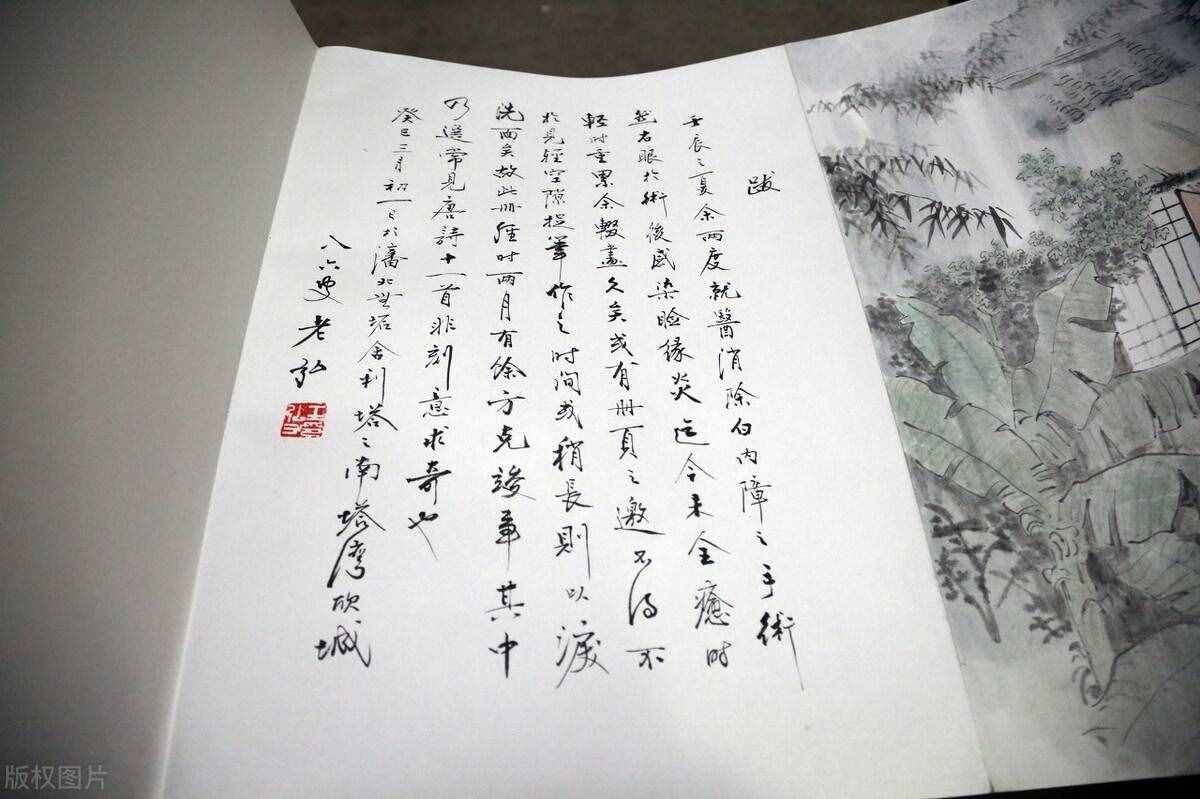 跋
壬辰之夏余两度就醫消除白内障之手術
然右眼於術後感染瞼緣炎迄今未全癒时
輕时重累余輟畫久矣或有册頁之邀不得不
於見輕空隙捉筆作之时间或稍長則以淚
洗面矣故此册歷时两月有馀方克竣事其中
乃選常見唐詩十一首非刻意求奇也
癸巳三月初一日於瀋北無垢舍利塔之南塔灣欣城
八六叟老弘
版权图片